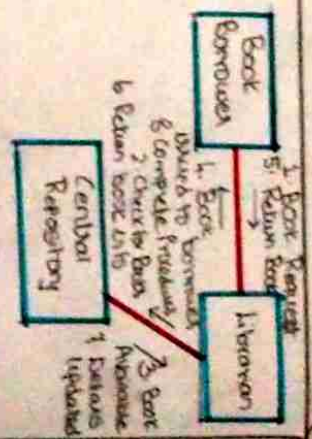 Book
Borrower
1. Book Request
5. Return Book
Librarian
4. Book
issued to borrower
8 Complete Procedure
2 Check for Book
6 Return book info
3 Book
Available
7 Details
Updated
Central
Repository